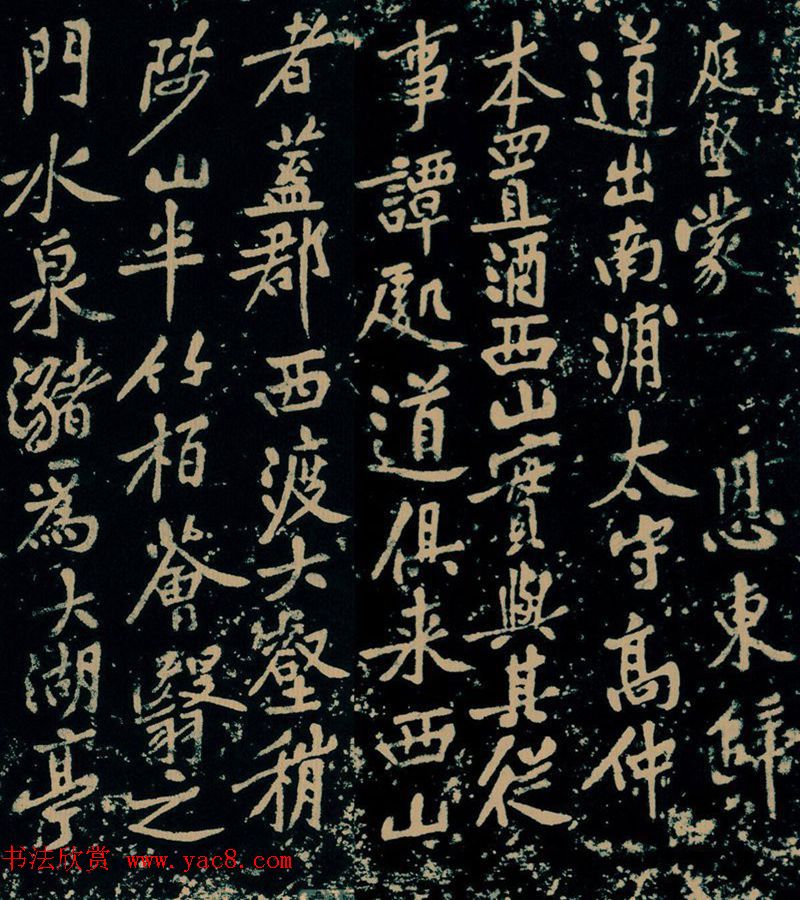 庭堅蒙 恩東歸
道出南浦太守高仲
本置酒西山實與其從
事譚處道俱来西山
者蓋郡西渡大壑稍
陟山半竹柏薈翳之
門水泉瀦為大湖亭
书法欣赏 www.yac8.com